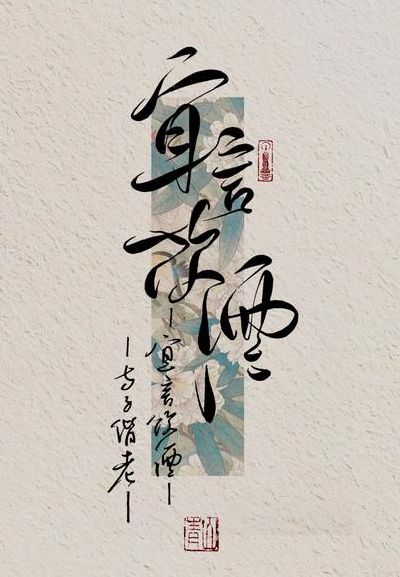 宜言饮酒
—宜言饮酒—
—与子偕老—